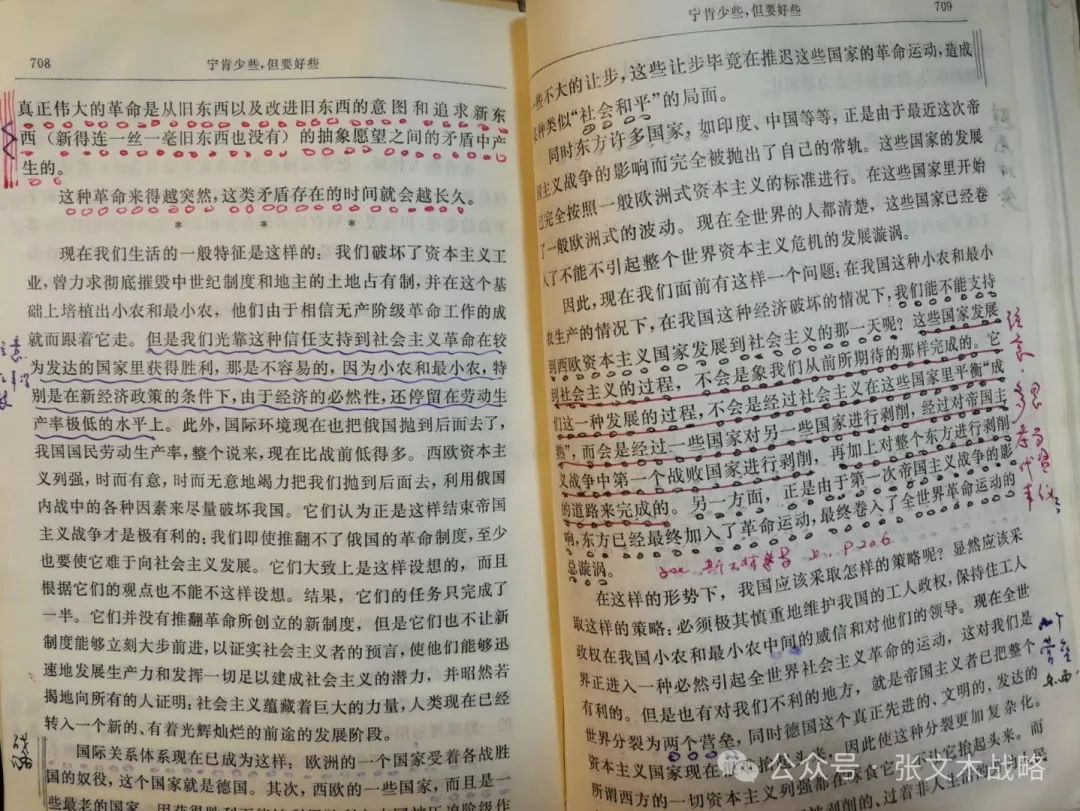 708
宁肯少些，但要好些
真正伟大的革命是从旧东西以及改进旧东西的意图和追求新东
西（新得连一丝一毫旧东西也没有）的抽象愿望之间的矛盾中产
生的。
这种革命来得越突然，这类矛盾存在的时间就会越长久。
* * *
现在我们生活的一般特征是这样的：我们破坏了资本主义工
业，曾力求彻底摧毁中世纪制度和地主的土地占有制，并在这个基
础上培植出小农和最小农，他们由于相信无产阶级革命工作的成
就而跟着它走。但是我们光靠这种信任支持到社会主义革命在较
为发达的国家里获得胜利，那是不容易的，因为小农和最小农，特
别是在新经济政策的条件下，由于经济的必然性，还停留在劳动生
产率极低的水平上。此外，国际环境现在也把俄国抛到后面去了，
我国国民劳动生产率，整个说来，现在比战前低得多。西欧资本主
义列强，时而有意，时而无意地竭力把我们抛到后面去，利用俄国
内战中的各种因素来尽量破坏我国。它们认为正是这样结束帝国
主义战争才是极有利的；我们即使推翻不了俄国的革命制度，至少
也要使它难于向社会主义发展。它们大致上是这样设想的，而且
根据它们的观点也不能不这样设想。结果，它们的任务只完成了
一半。它们并没有推翻革命所创立的新制度，但是它们也不让新
制度能够立刻大步前进，以证实社会主义者的预言，使他们能够迅
速地发展生产力和发挥一切足以建成社会主义的潜力，并昭然若
揭地向所有的人证明：社会主义蕴藏着巨大的力量，人类现在已经
转入一个新的、有着光辉灿烂的前途的发展阶段。
国际关系体系现在已成为这样：欧洲的一个国家受着各战胜
国的奴役，这个国家就是德国。其次，西欧的一些国家，而且是一
些最老的国家，因获得胜利
宁肯少些，但要好些
709
些不大的让步，这些让步毕竟在推迟这些国家的革命运动，造成
种类似“社会和平”的局面。
同时东方许多国家，如印度、中国等等，正是由于最近这次帝
国主义战争的影响而完全被抛出了自己的常轨。这些国家的发展
已完全按照一般欧洲式资本主义的标准进行。在这些国家里开始
了一般欧洲式的波动。现在全世界的人都清楚，这些国家已经卷
入了不能不引起整个世界资本主义危机的发展漩涡。
因此，现在我们面前有这样一个问题：在我国这种小农和最小
农生产的情况下，在我国这种经济破坏的情况下，我们能不能支持
到西欧资本主义国家发展到社会主义的那一天呢？这些国家发展
到社会主义的过程，不会是象我们从前所期待的那样完成的。它
们这一种发展的过程，不会是经过社会主义在这些国家里平衡“成
熟”，而会是经过一些国家对另一些国家进行剥削，经过对帝国主
义战争中第一个战败国家进行剥削，再加上对整个东方进行剥削
的道路来完成的。另一方面，正是由于第一次帝国主义战争的影
响，东方已经最终加入了革命运动，最终卷入了全世界革命运动的
总漩涡。
在这样的形势下，我国应该采取怎样的策略呢？显然应该采
取这样的策略：必须极其慎重地维护我国的工人政权，保持住工人
政权在我国小农和最小农中间的威信和对他们的领导。现在全世
界正进入一种必然引起全世界社会主义革命的运动，这对我们是
有利的。但是也有对我们不利的地方，就是帝国主义者已把整个
世界分裂为两个营垒，同时德国这个真正先进的、文明的、发达的
资本主义国家现在
抬起头来，因此使这种分裂更加复杂化。
所谓西方的一切资本主义列强都在啄食它，不让它抬起头来。而
被剥削的，过着非人生活的
公众号·张文木战略